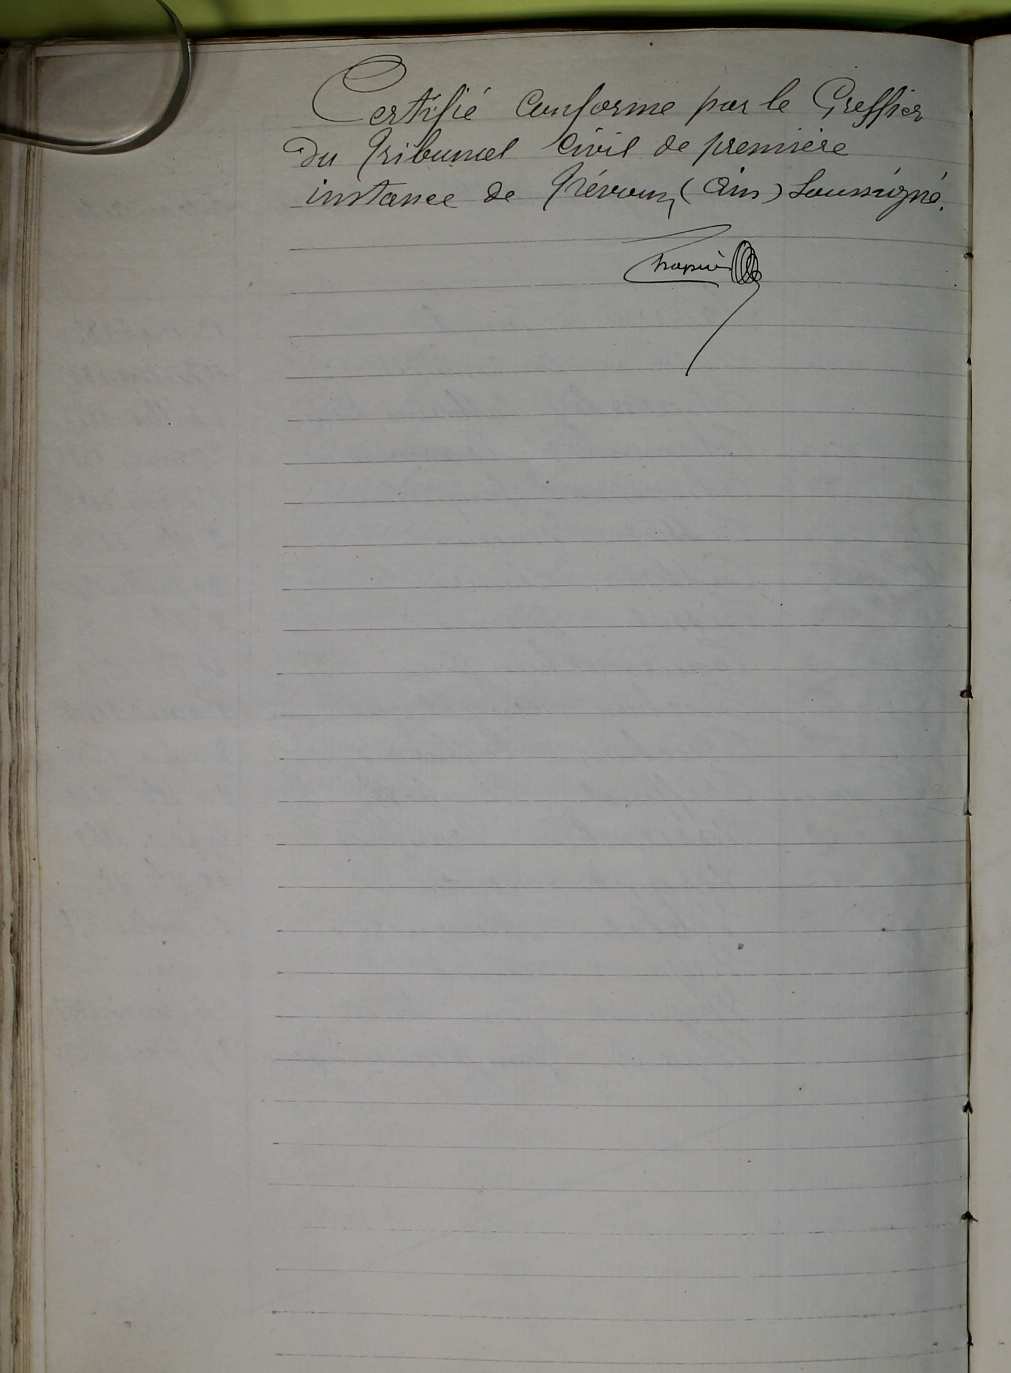 Certifié conforme par le Greffier
du Tribunal Civil de première
instance de Trévoux, (Ain) Soussigné.